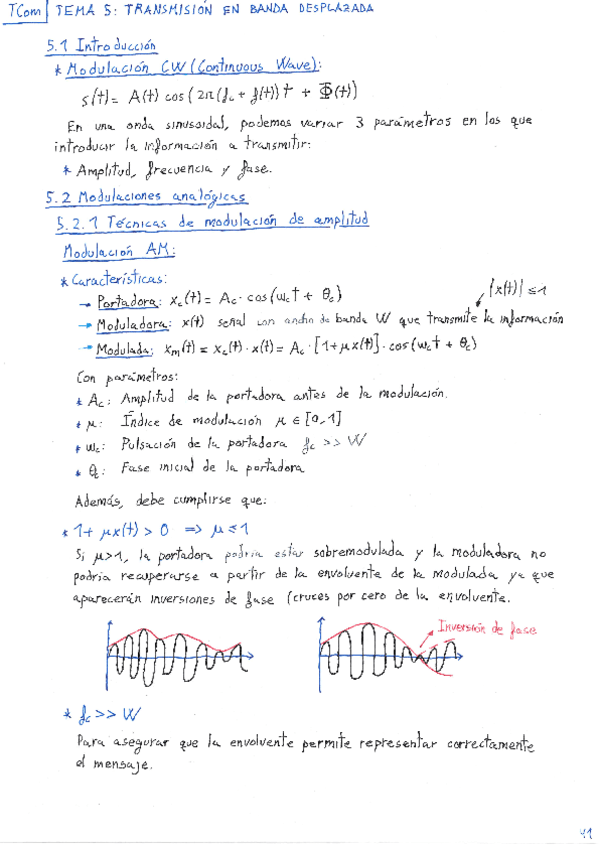 TCom TEMA 5: TRANSMISIÓN EN BANDA DESPLAZADA
5.1 Introducción
* Modulación CW (Continuous Wave):
s(t) = A(t) cos (2π(fc + f(t)) t + Φ(t))
En una onda sinusoidal, podemos variar 3 parámetros en los que
introducir la información a transmitir:
* Amplitud, frecuencia y fase.
5.2 Modulaciones analógicas
5.2.1 Técnicas de modulación de amplitud
Modulación AM:
* Características:
→ Portadora: xc(t) = Ac · cos(wct + θc)
|x(t)| ≤ 1
→ Moduladora: x(t) señal con ancho de banda W que transmite la información
→ Modulada: xm(t) = xc(t) · x(t) = Ac · [1+μx(t)] · cos(wct + θc)
Con parámetros:
* Ac: Amplitud de la portadora antes de la modulación.
* μ: Índice de modulación μ ∈ [0,1]
* wc: Pulsación de la portadora fc >> W
* θc: Fase inicial de la portadora
Además, debe cumplirse que:
* 1+ μx(t) > 0 => μ ≤ 1
Si μ>1, la portadora podría estar sobremodulada y la moduladora no
podría recuperarse a partir de la envolvente de la modulada ya que
aparecerán inversiones de fase (cruces por cero de la envolvente.
Inversión de fase
* fc >> W
Para asegurar que la envolvente permite representar correctamente
el mensaje.
41